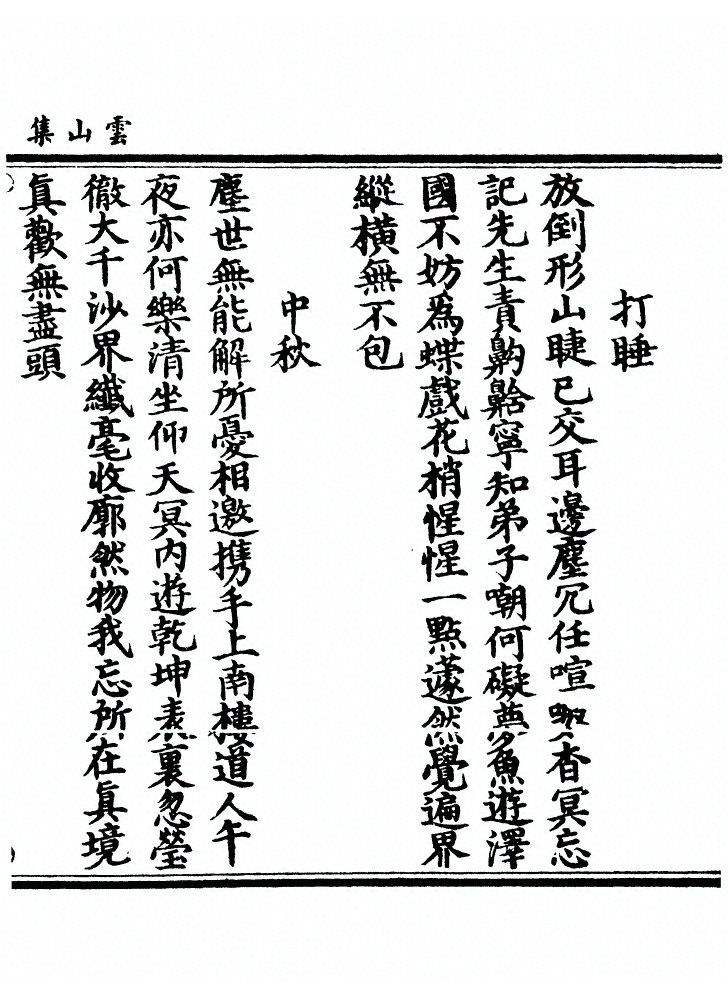 雲山集
打睡
放倒形山睫已交耳邊塵冗任喧呶杳冥忘
記先生責齁䶎寧知弟子嘲何礙夢魚遊澤
國不妨爲蝶戲花梢惺惺一點蘧然覺遍界
縱橫無不包
中秋
塵世無能解所憂相邀携手上南樓道人午
夜亦何樂清坐仰天冥内遊乾坤表裏忽瑩
徹大千沙界纖毫收廓然物我忘所在眞境
眞歡無盡頭